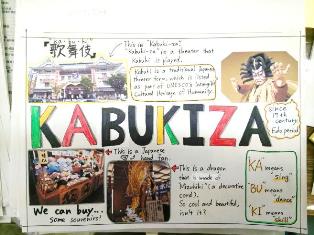 かぶき
「歌舞伎」
This is "Kabuki-za".
"Kabuki-za" is a theater that
Kabuki is played.
Kabuki is a traditional Japanese
theater form, which is listed
as part of UNESCO's Intangible
Cultural Heritage of Humanity.
KABUKIZA
Since
17th
century.
Edo period
This is a Japanese
hand fan.
This is a dragon
that is made of
Mizuhiki "(a decorative
cord).
So cool and beautiful,
isn't it?
We can buy...
Some souvenirs!
KA means
"sing"
BU means
"dance"
"KI" means
"skill"